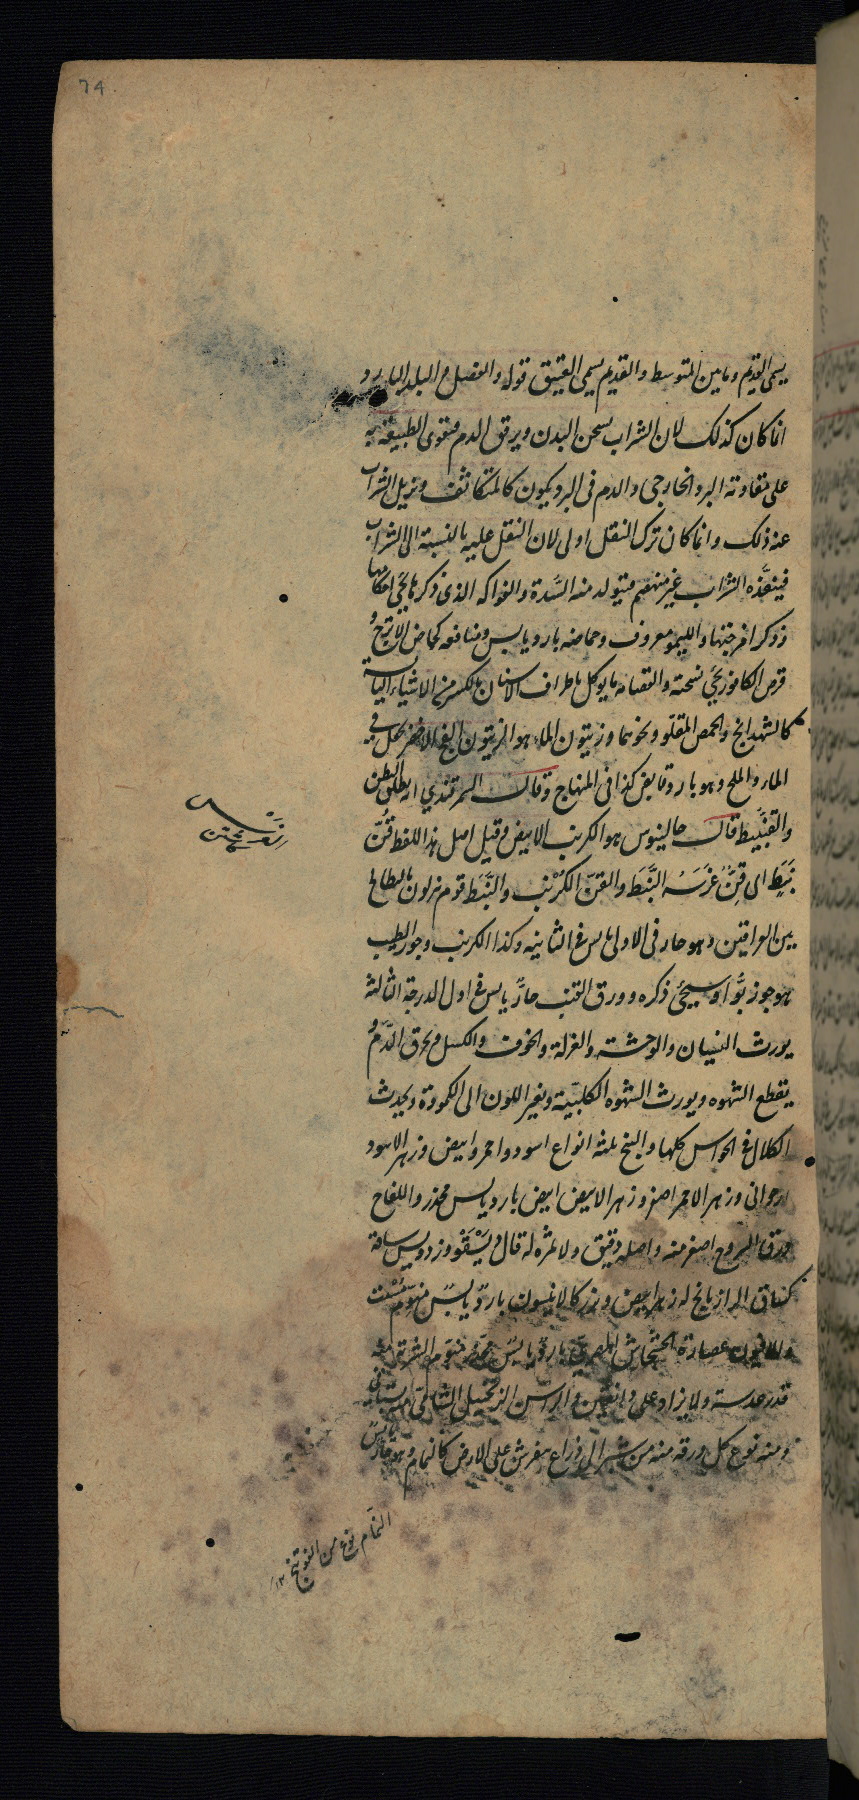 74
يسمى القديم وما بين المتوسط والقديم يسمى العتيق قوله والفصل والبلد البارد
انما كان كذلك لان الشراب يسخن البدن ويرقق الدم فتقوى الطبيعة به
على مقاومة البرد الخارجى والدم فى البرد يكون كالمتكاثف ويزيل الشراب
عنه ذلك وانما كان ترك النقل اولى لان النقل عليه بالنسبة الى الشراب
فينفذه الشراب غير منهضم فيتولد منه السدة والفواكه الذى ذكرها يجئ احكامها
وذكر امزجتها والليمو معروف وحماضه بارد يابس ومنافعه كحماض الاترج و
قرص الكافور يجئ نسخته والقضامه ما يوكل باطراف الاسنان بالكسر من الاشياء اليابسة
كالشهدانج والحمص المقلو ونحوهما وزيتون الماء هو الزيتون الفج الاخضر يجعل فى
الماء والملح وهو بارد قابض كذا فى المنهاج وقال السمرقندي انه يطلق البطن
والقنبيط قال جالينوس هو الكرنب الابيض وقيل اصل هذا اللفظ قن
نبط اى قن غرسه النبط والقن الكرنب والنبط قوم ينزلون بالبطائح
بين العراقين وهو حار فى الاولى يابس فى الثانيه وكذا الكرنب وجوز الطيب
هو جوز بوا وسيجئ ذكره وورق القنب حار يابس فى اول الدرجة الثالثة
يورث النسيان والوحشة والعزلة والخوف والكسل ويحرق الدم و
يقطع الشهوه ويورث الشهوه الكلبية ويغير اللون الى الكمودة ويحدث
الكلال فى الحواس كلها والبنج ثلثة انواع اسود واحمر وابيض وزهر الاسود
ارجوانى وزهر الاحمر اصفر وزهر الابيض ابيض بارد يابس مخدر واللفاح
ورق اليبروح اصغر منه واصله دقيق ولا ثمره له قال ديسقوريدوس ساقه
كساق الرازيانج له زهر ابيض وبزر كالانيسون بارد يابس منوم مسبت
والافيون عصارة الخشخاش المصرى بارد يابس مخدر منوم الشربة منه
قدر عدسة ولا يزاد على دانقين والراسن الزنجبيل الشامى منه بستانى
ومنه نوع كل ورقه منه من شبر الى ذراع مفرش على الارض كالنمام وهو حار يابس
النمام نوع من الفوتنج ١٢